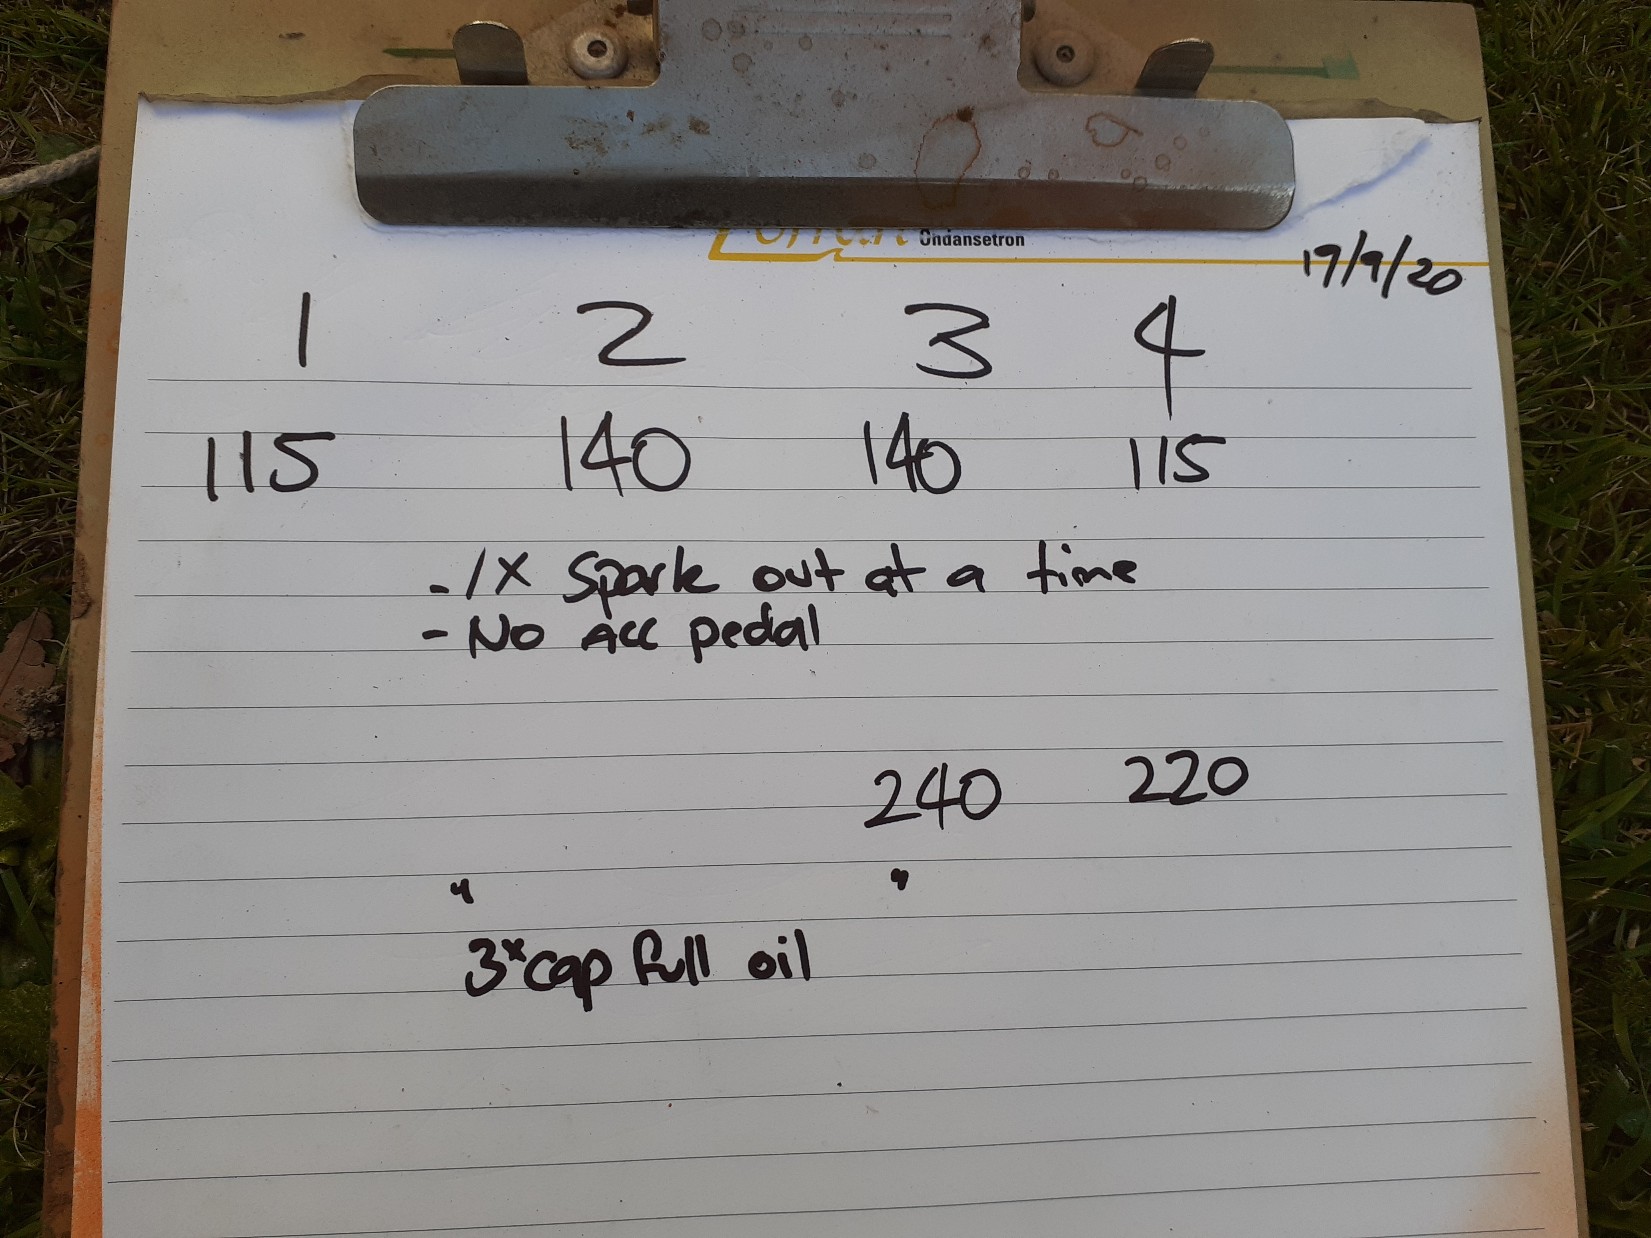 Ondansetron
19/9/20
1 2 3 4
115 140 140 115
- 1x Spark out at a time
- No Acc pedal
240 220
" "
3x cap full oil